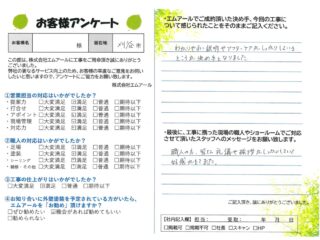 お客様アンケート
お客様名
様
居住地
刈谷市
この度は、株式会社エムアールに工事をご用命頂き誠にありがとうございました。
株式会社エムアール
■営業担当の対応はいかがでしたか？
・提案力 □大変満足 □満足 □普通 □期待以下
・打合せ □大変満足 □満足 □普通 □期待以下
・アポイント □大変満足 □満足 □普通 □期待以下
・現場管理 □大変満足 □満足 □普通 □期待以下
・印象 □大変満足 □満足 □普通 □期待以下
■職人の対応はいかがでしたか？
・足場 □大変満足 □満足 □普通 □期待以下
・塗装 □大変満足 □満足 □普通 □期待以下
・シーリング □大変満足 □満足 □普通 □期待以下
・補修・その他 □大変満足 □満足 □普通 □期待以下
■工事の仕上がりはいかがでしたか？
□大変満足 □満足 □普通 □期待以下
■お知り合いに外壁塗装を予定されている方がいたら、
エムアールを「お勧め」頂けますか？
□ぜひ勧めたい □機会があれば勧めてもいい
□勧められない
・エムアールでご成約頂いた決め手、今回の工事に
ついて感じられたことをそのままご記入ください。
わかりやすい説明やアフターケアがしっかりしている
ところが決め手となりました
・最後に、工事に携った現場の職人やショールームでご対応
させて頂いたスタッフへのメッセージをお願い致します。
職人の方、皆さん元気で挨拶もしっかりしていて
好感がもてました。
ご記入頂き、誠にありがとうございました。
【社内記入欄】担当： 受取： 年 月 日
□掲載可 □掲載不可 □社長 □スキャン □HP